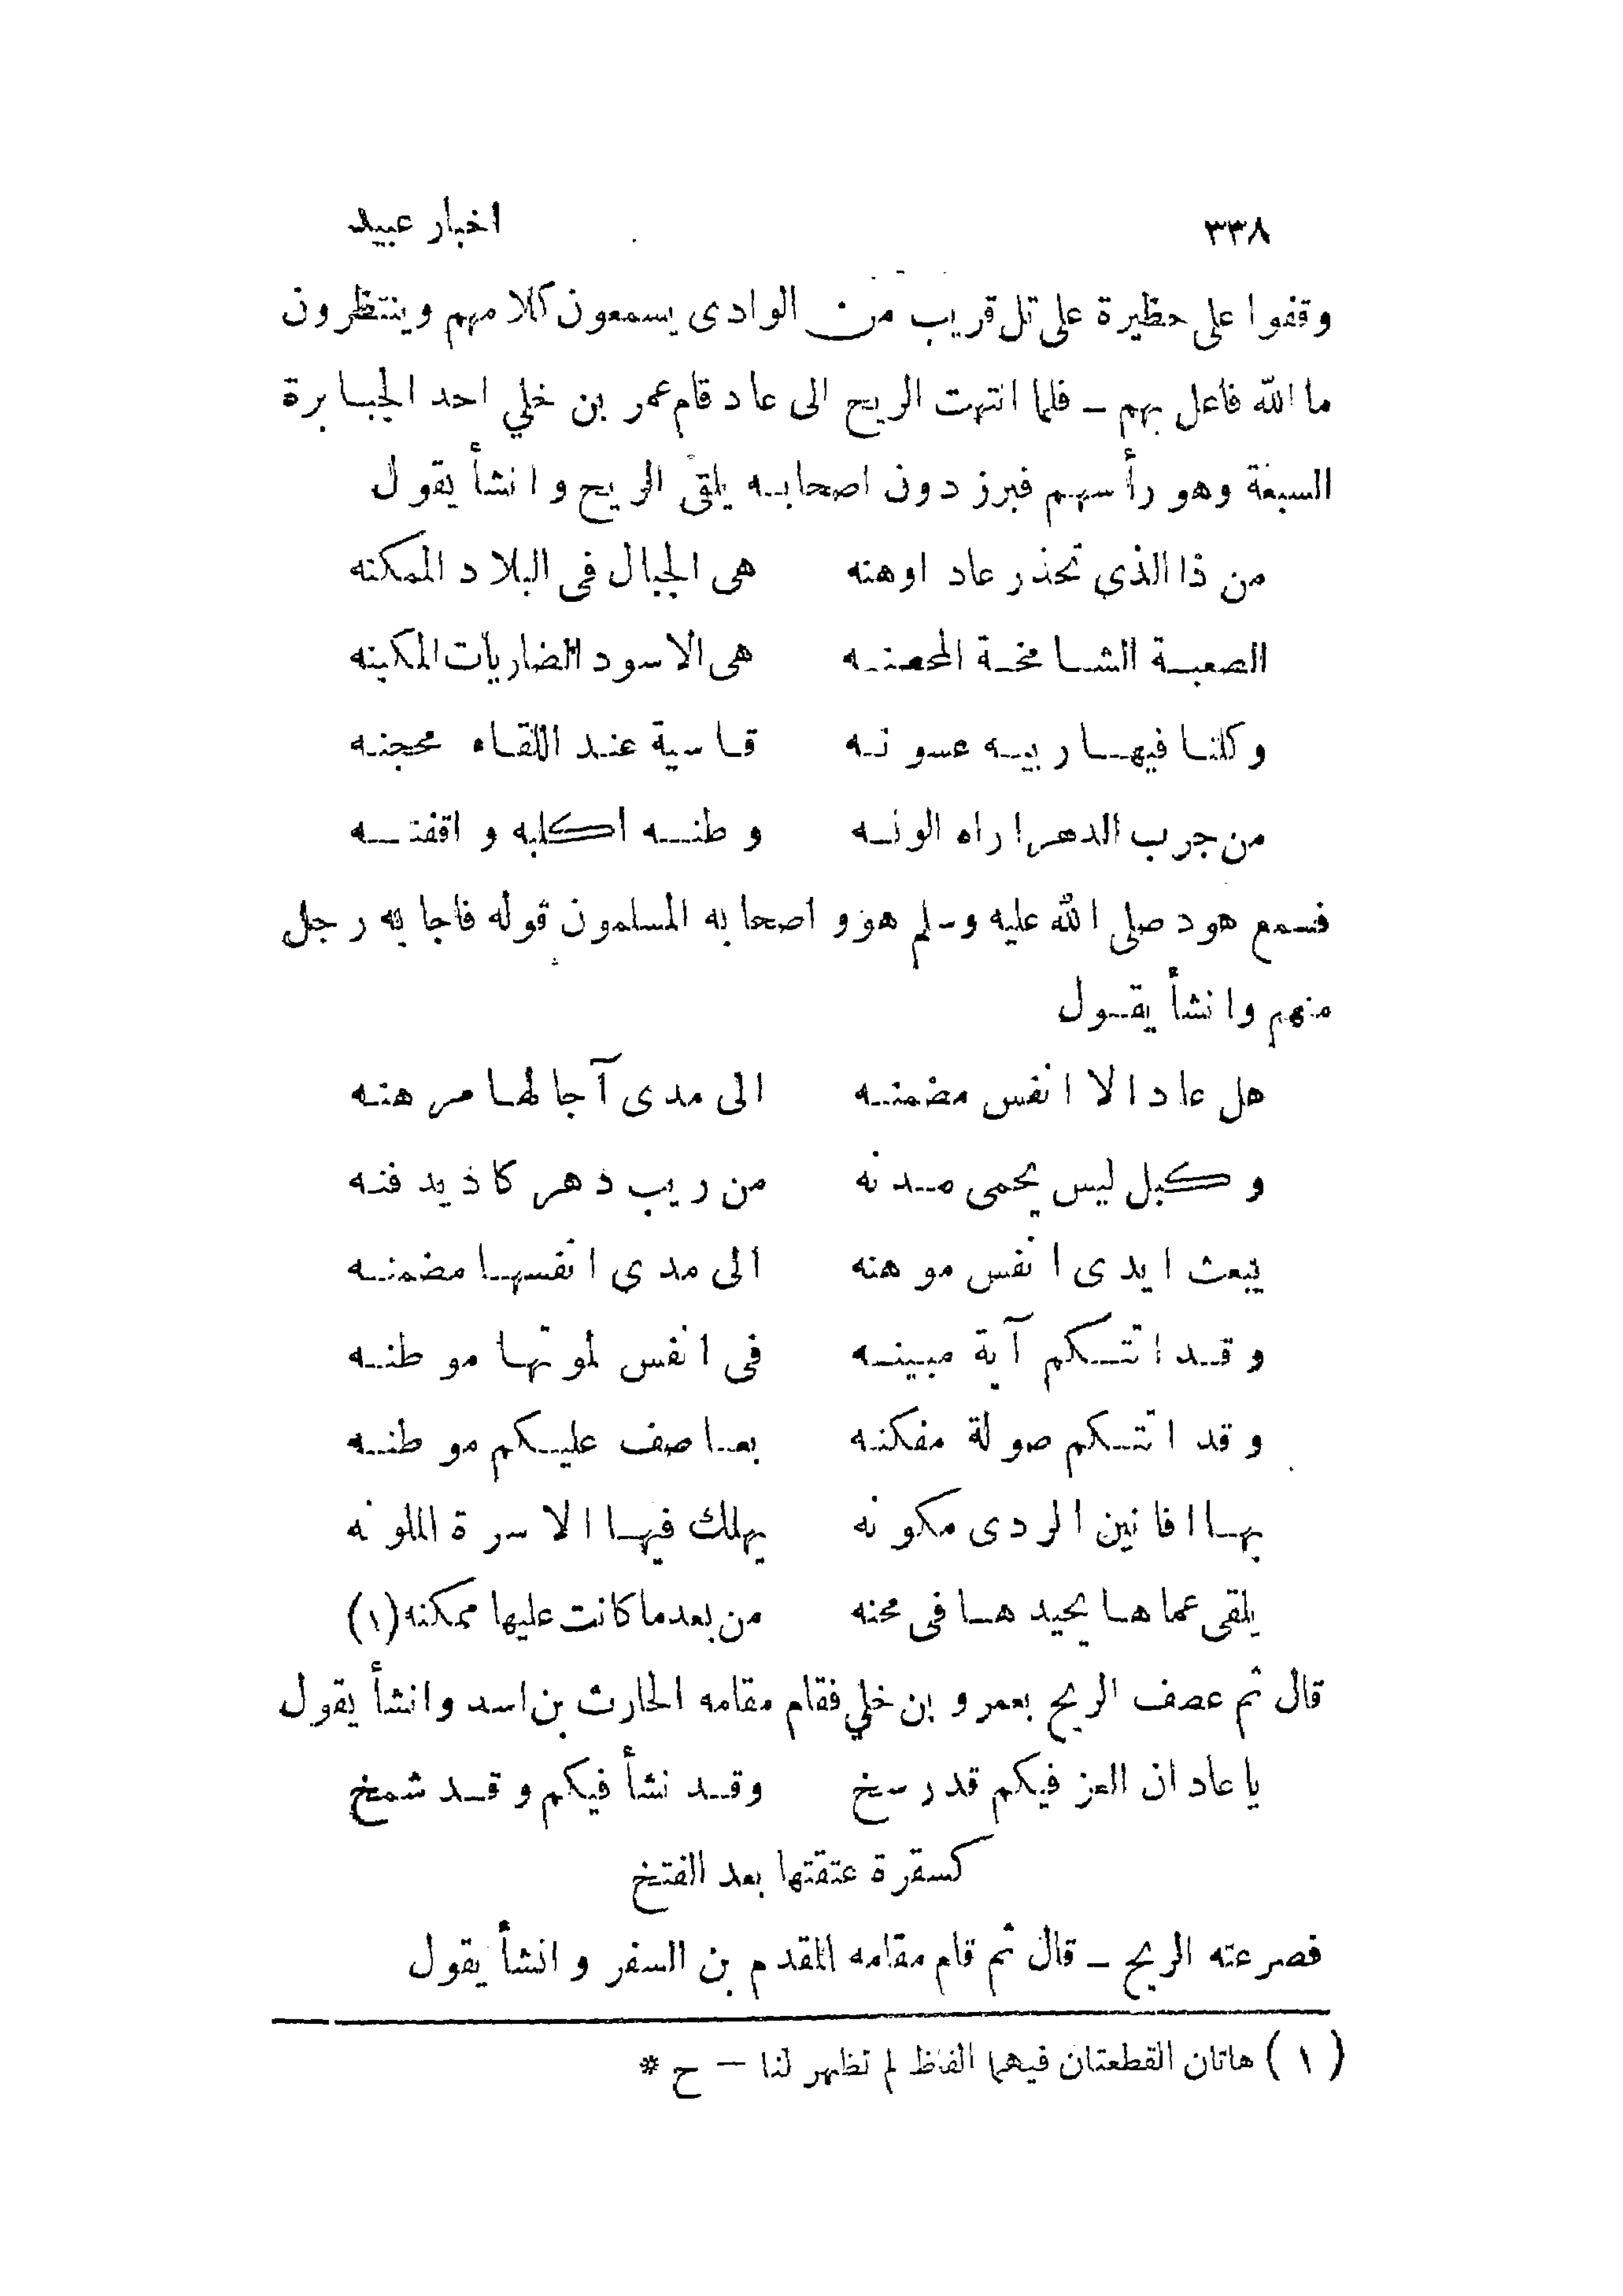 ٣٣٨ اخبار عبيد
وقفوا على حظيرة على تل قريب من الوادى يسمعون كلامهم وينتظرون
ما الله فاعل بهم – فلما انتهت الريح الى عاد قام عمر بن خلي احد الجبابرة
السبعة وهو رأسهم فبرز دون اصحابه يلقى الريح وانشأ يقول
من ذا الذى تحذر عاد اوهنه هى الجبال فى البلاد الممكنه
الصعبة الشامخة المحصنه هى الاسود الضاريات المكينه
وكلنا فيها ربيه عسونه قاسية عند اللقاء محجنه
من جرب الدهر اراه الونه وطنه اكلبه واقفته
فسمع هود صلى الله عليه وسلم هو واصحابه المسلمون قوله فاجابه رجل
منهم وانشأ يقول
هل عاد الا انفس مضمنه الى مدى آجالها مرهنه
وكبل ليس يحمى مدنه من ريب دهر كاذيد فنه
يبعث ايدى انفس موهنه الى مدى انفسها مضمنه
وقد اتتكم آية مبينه فى انفس لموتها موطنه
وقد اتتكم صولة مفكنه بعاصف عليكم موطنه
بها افانين الردى مكونه يهلك فيها الاسرة الملونه
يلقى عماها يحيدها فى محنه من بعد ما كانت عليها ممكنه (١)
قال ثم عصف الريح بعمرو بن خلي فقام مقامه الحارث بن اسد وانشأ يقول
يا عاد ان العز فيكم قد رسخ وقد نشأ فيكم وقد شمخ
كسقرة عتقتها بعد الفتخ
فصرعته الريح – قال ثم قام مقامه المقدم بن السفر وانشأ يقول
(١) هاتان القطعتان فيهما الفاظ لم تظهر لنا – ح *